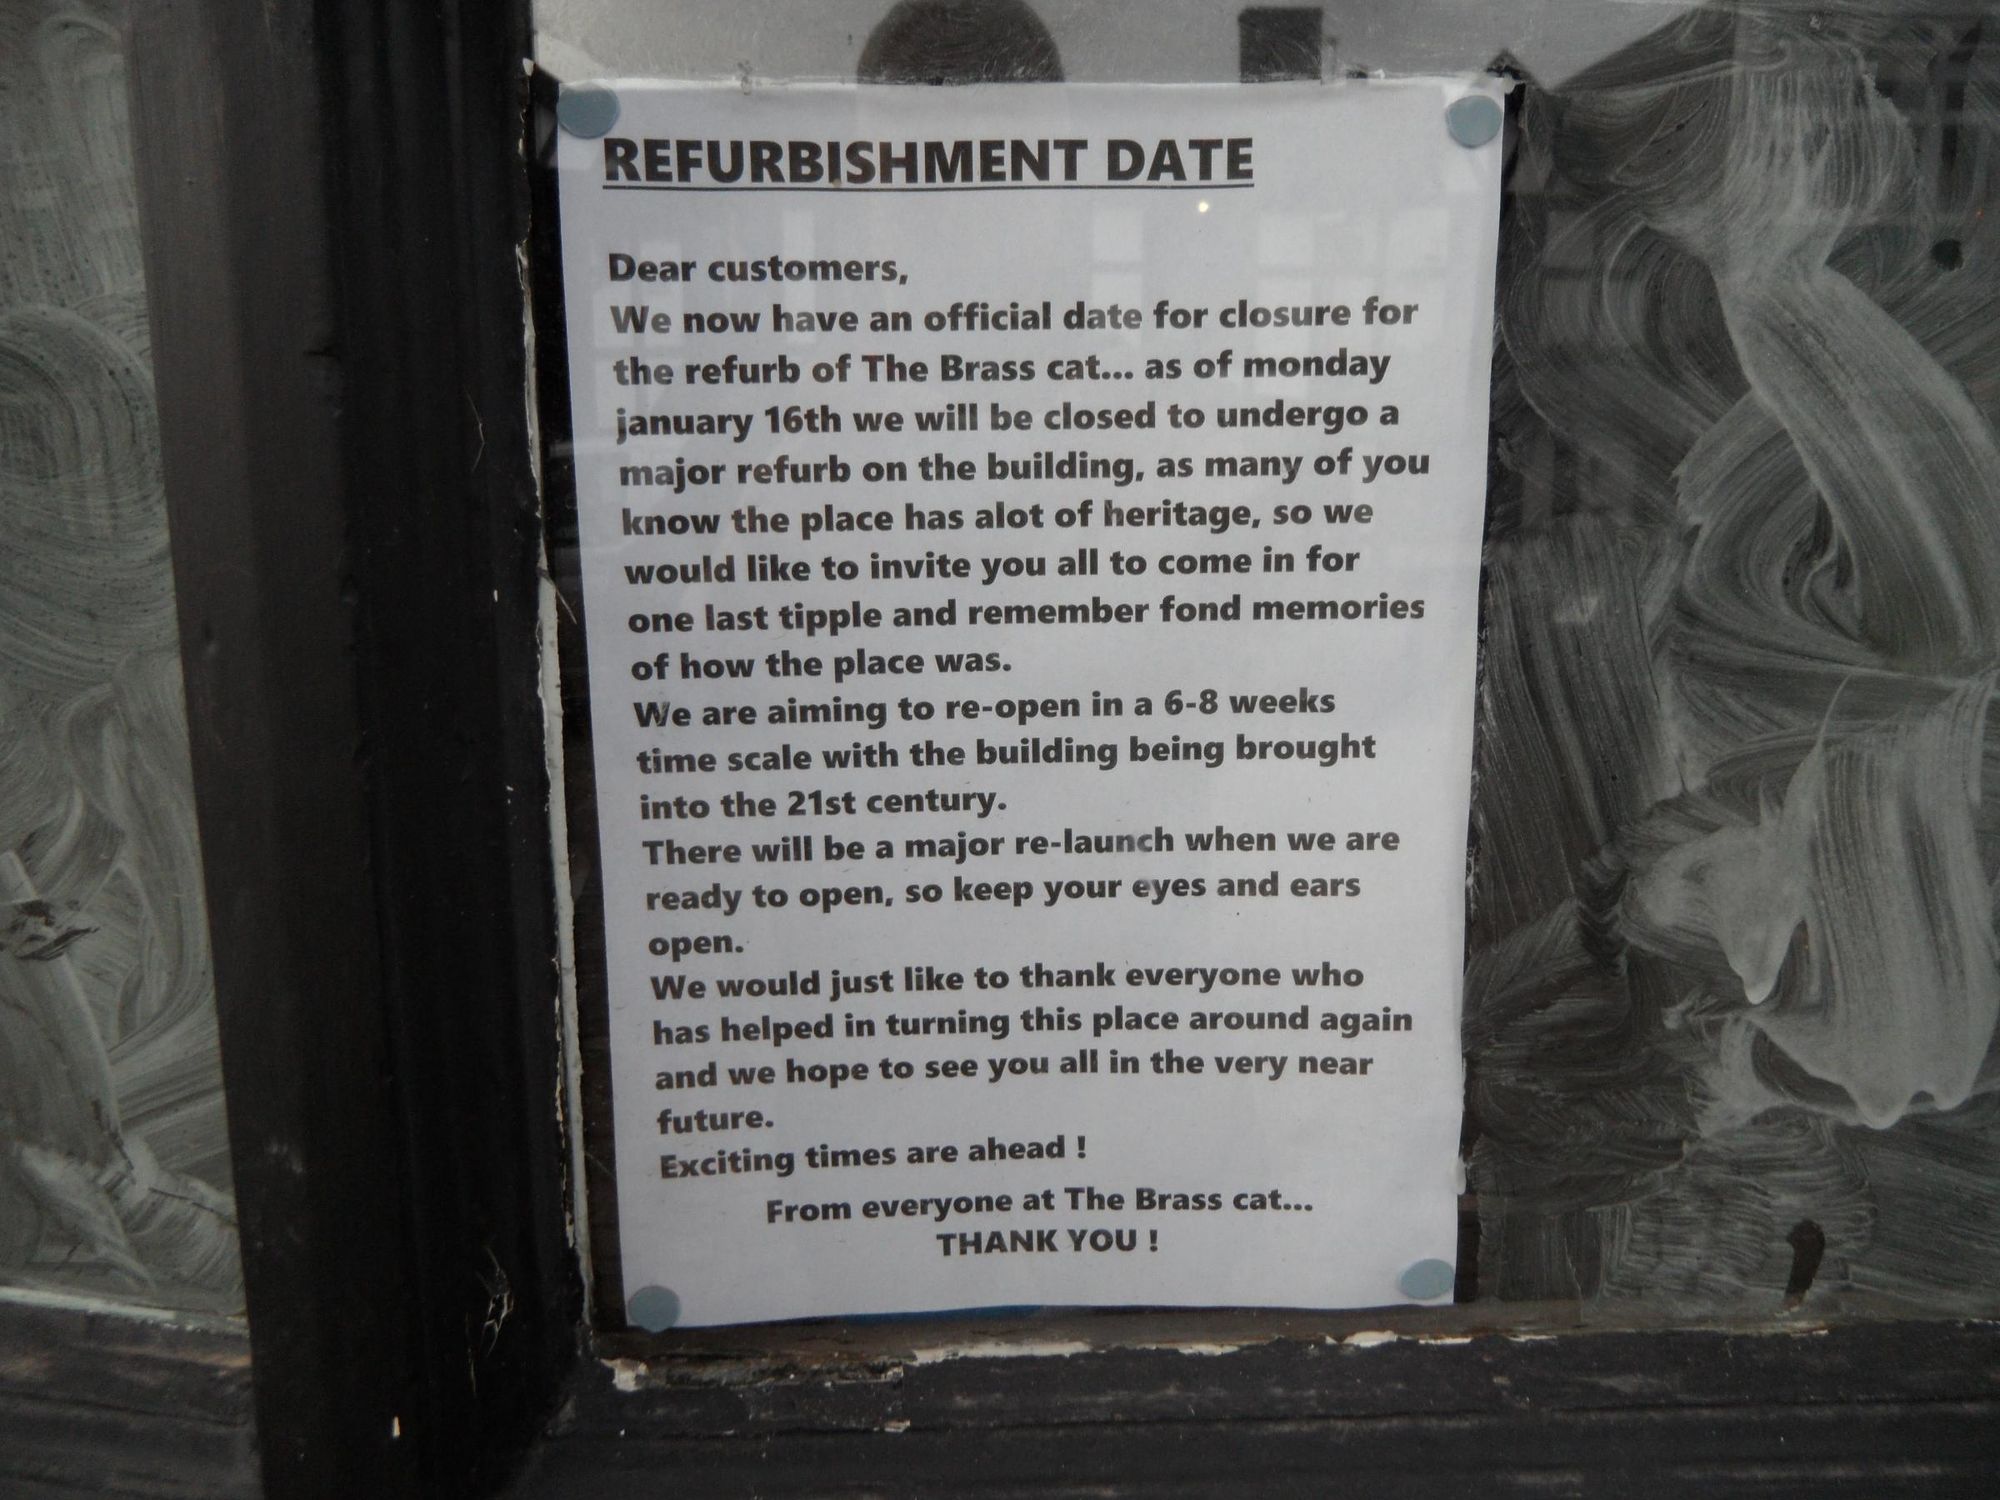 REFURBISHMENT DATE
Dear customers,
We now have an official date for closure for
the refurb of The Brass cat... as of monday
january 16th we will be closed to undergo a
major refurb on the building, as many of you
know the place has alot of heritage, so we
would like to invite you all to come in for
one last tipple and remember fond memories
of how the place was.
We are aiming to re-open in a 6-8 weeks
time scale with the building being brought
into the 21st century.
There will be a major re-launch when we are
ready to open, so keep your eyes and ears
open.
We would just like to thank everyone who
has helped in turning this place around again
and we hope to see you all in the very near
future.
Exciting times are ahead !
From everyone at The Brass cat...
THANK YOU !